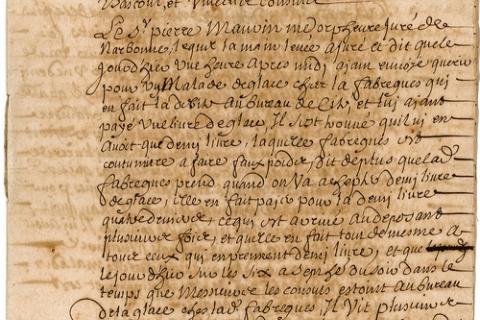 Le Sr pierre Mauvin me orpheure Juré de
Narbonne, lequel la main levée a juré et dit que le
jourdhier une heure apres midi ajant envoié querir
pour un Malade de glace chez la fabreques qui
en fait la debite au bureau de et lui ajant
payé une livre de glace, Il s'est trouvé qu'il lui en
avoit que demi livre, laquelle fabreques est
coutumiere a faire faux poidz, dit de plus que lad
fabreques prend quand on va achepter demi livre
de glace, elle en fait paier pour la demi livre
quatre deniers ce qui est arrivé au deposant
plusieurs fois, et quelle en fait tout de mesme a
tous ceux qui en prennent demi livre, et que
le jourdhier sur les six a sept h du soir dans le
temps que Messieurs les consuls estoint au bureau
de la glace ches lad fabreques, Il vit plusieurs